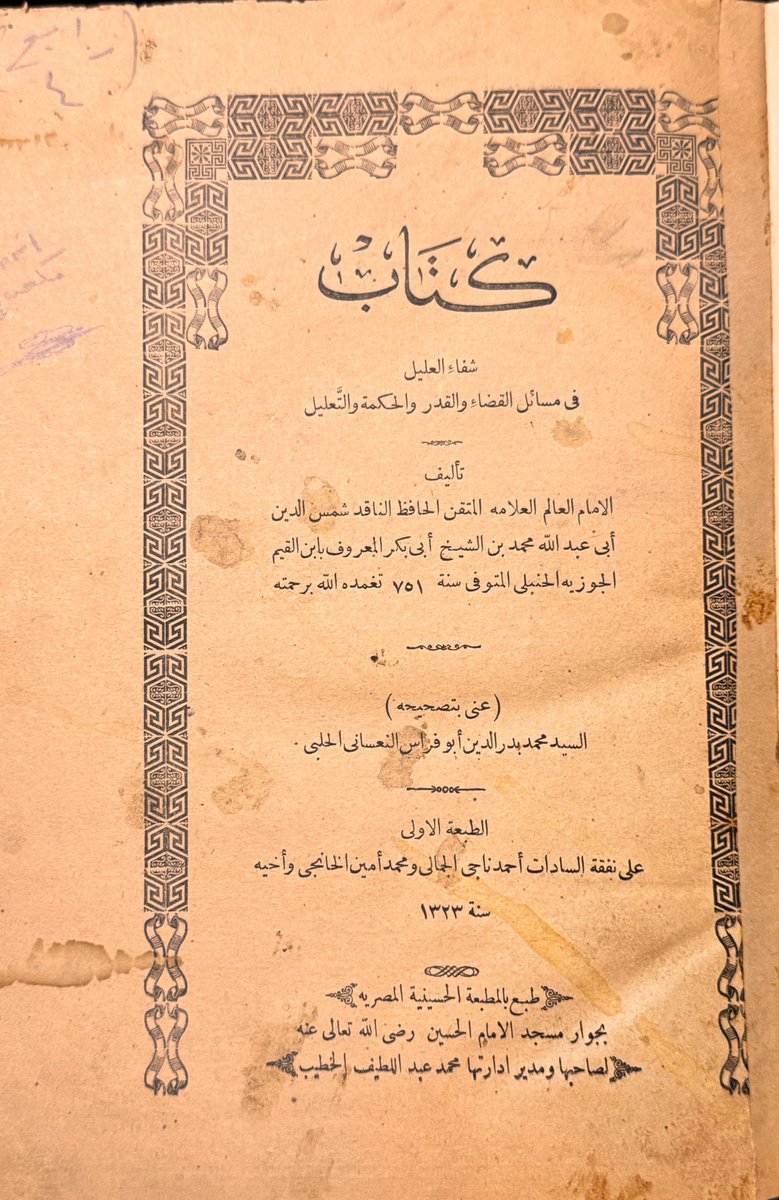 رابع
٤
كتاب
شفاء العليل
فى مسائل القضاء والقدر والحكمة والتَّعليل
تأليف
الامام العالم العلامه المتقن الحافظ الناقد شمس الدين
أبى عبد الله محمد بن الشيخ أبى بكر المعروف بابن القيم
الجوزيه الحنبلى المتوفى سنة ٧٥١ تغمده الله برحمته
(عنى بتصحيحه)
السيد محمد بدر الدين أبو فراس النعسانى الحلبى .
الطبعة الاولى
على نفقة السادات أحمد ناجى الجمالى ومحمد أمين الخانجى وأخيه
سنة ١٣٢٣
طبع بالمطبعة الحسينية المصريه
بجوار مسجد الامام الحسين رضى الله تعالى عنه
لصاحبها ومدير ادارتها محمد عبد اللطيف الخطيب